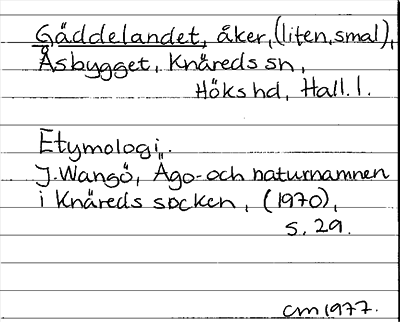 Gäddelandet, åker, (liten, smal),
Åsbygget, Knäreds sn,
Höks hd, Hall. l.
Etymologi.
J. Wangö, Ägo- och naturnamnen
i Knäreds socken, (1970),
s. 29.
cm 1977.